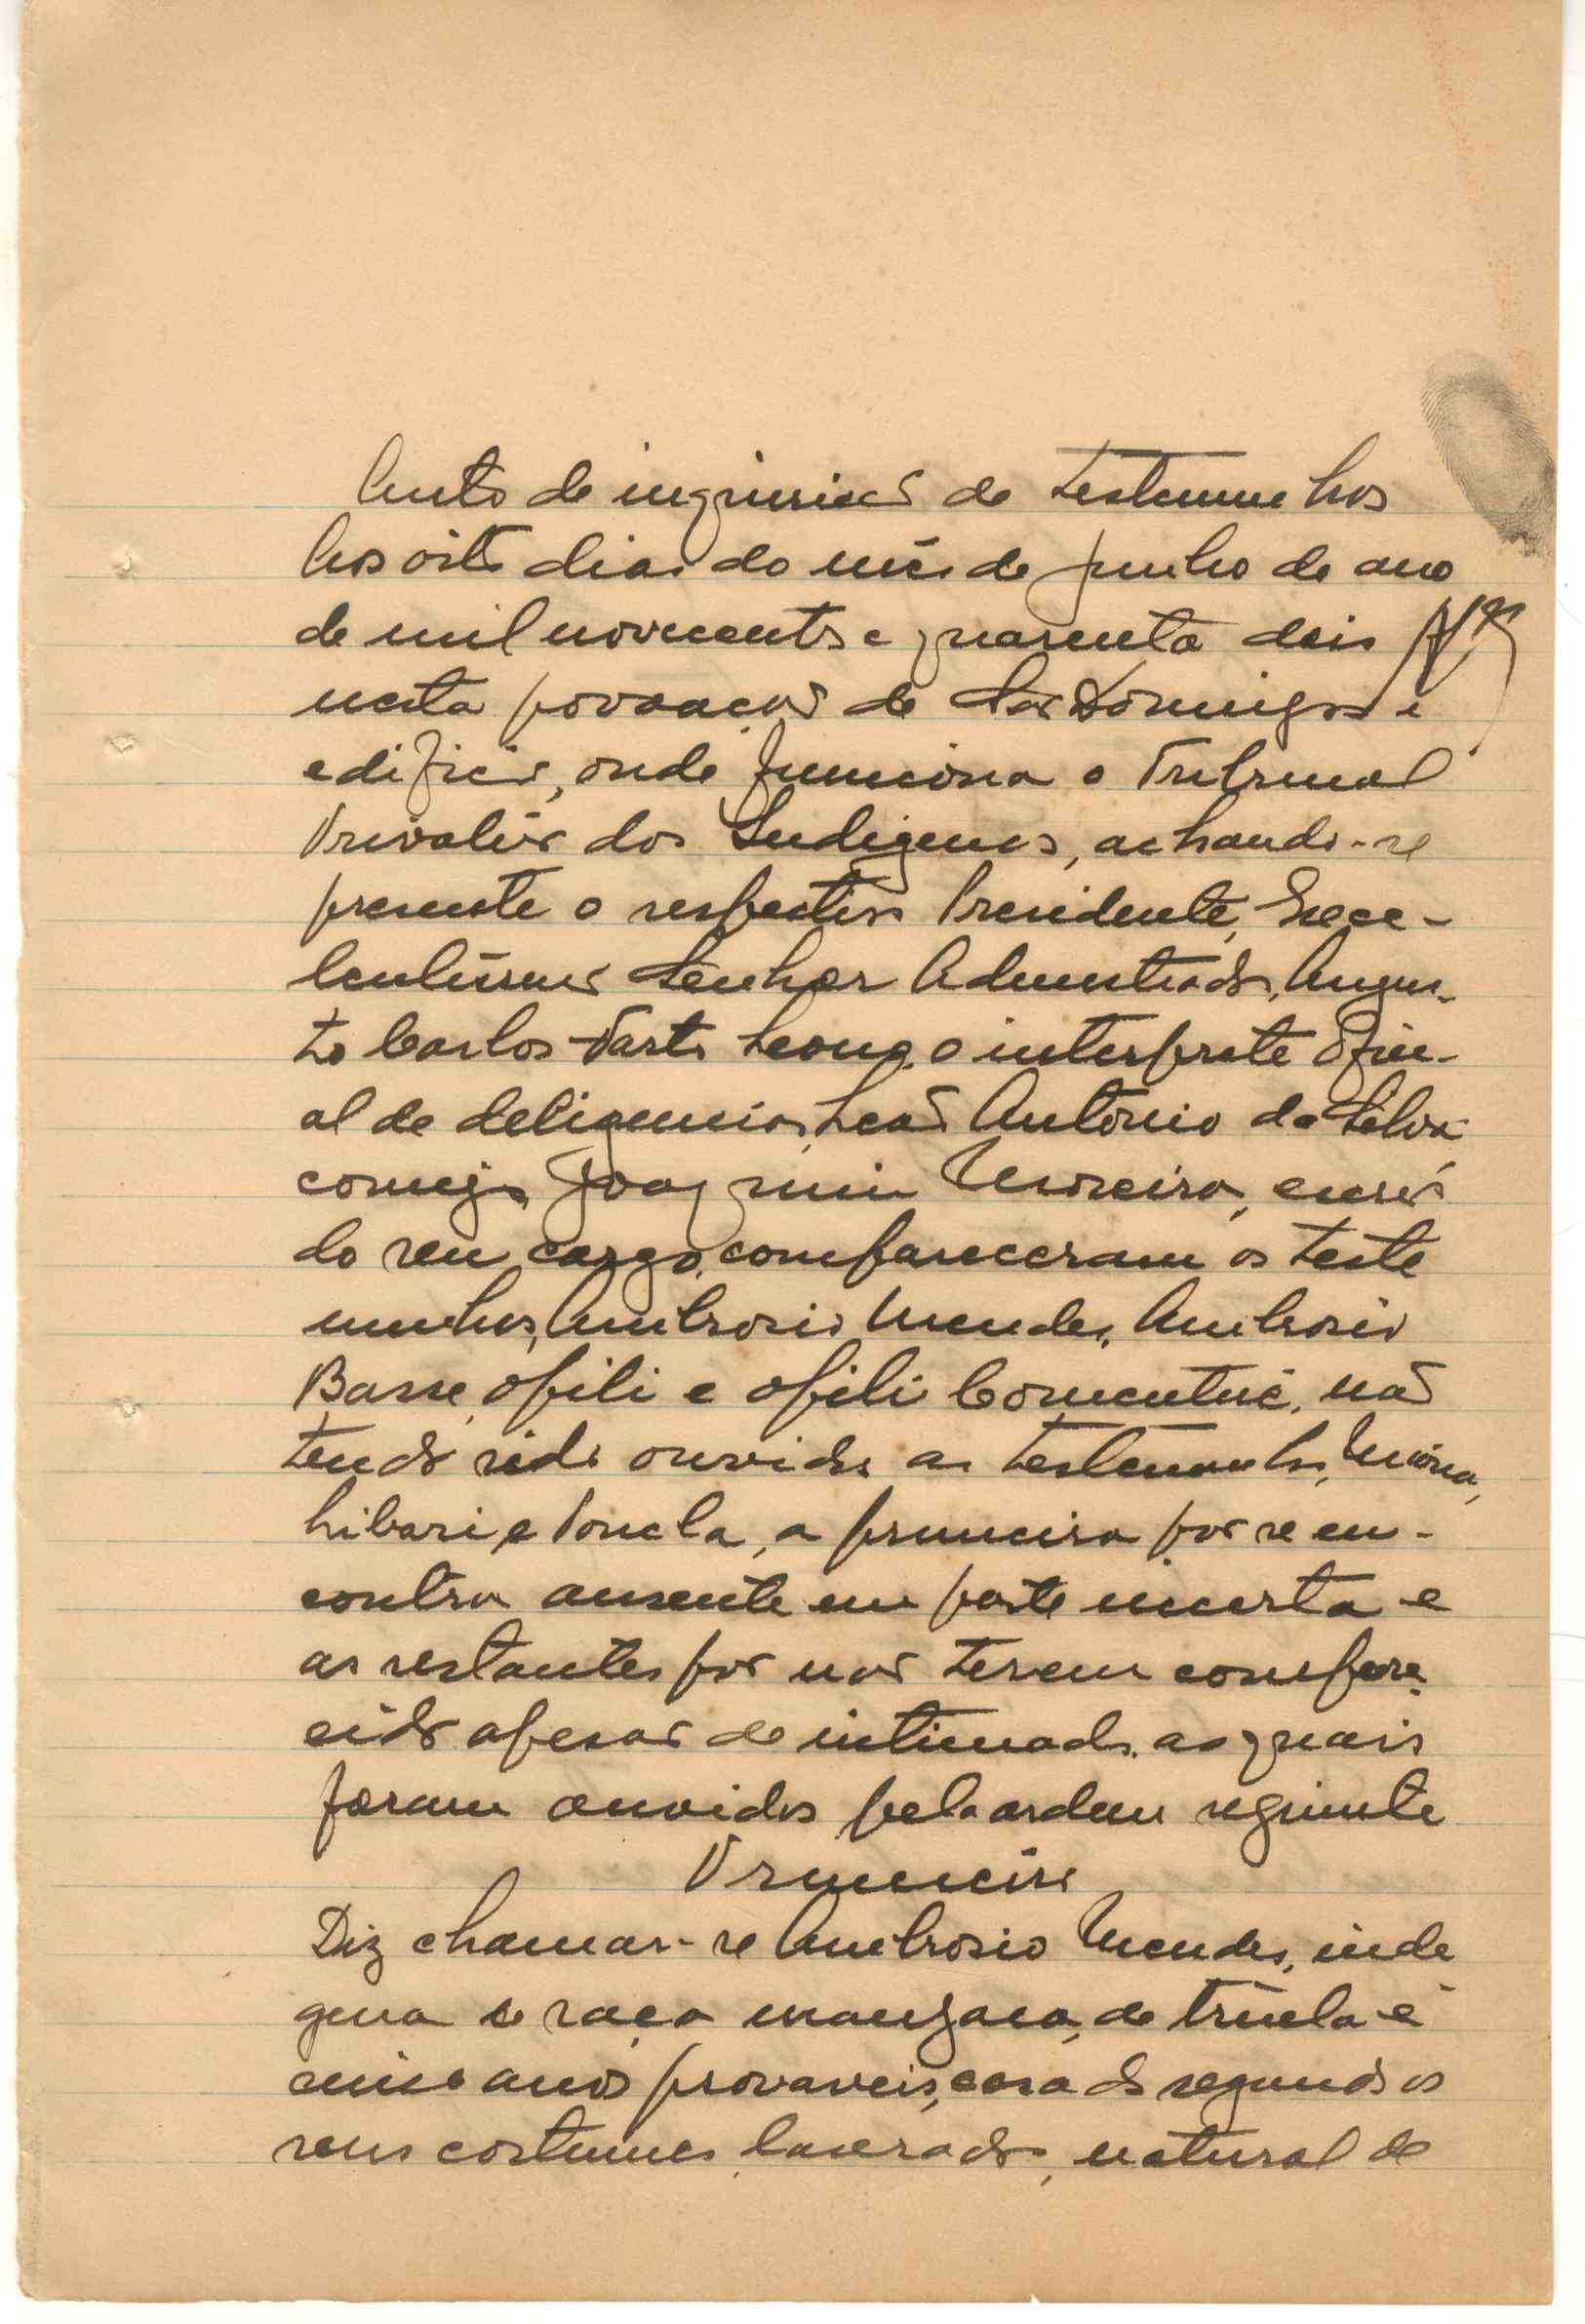 Auto de inquirição de testemunhos
Aos oito dias do mês de Junho de ano
de mil novecentos e quarenta dois
nesta povoação de São Domingos e
edificio, onde funciona o Tribunal
Privativo dos Indigenas, achando-se
presente o respectivo Presidente, Exce-
lentissimo Senhor Admnistrador, Augus-
to Carlos o interprete Ofici-
al de deligencias, Leão António da Silva
comigo, Joaquim Moreira,
do seu cargo, compareceram as teste
munhas, Ambrosio Mendes, Ambrosio
Basse, Ofili e Ofili não
tendo sido ouvidos as testemunhas,
a primeira por se en-
contra ausente em parte incerta e
as restantes por não terem compare-
cido apesar de intimados. as quais
foram ouvidos pela ordem seguinte
Primeira
Diz chamar-se Ambrosio Mendes, inde
gena de raça manjaca, de trinta e
cinco anos provaveis, casado segundo os
seus costumes, lavrador, natural de